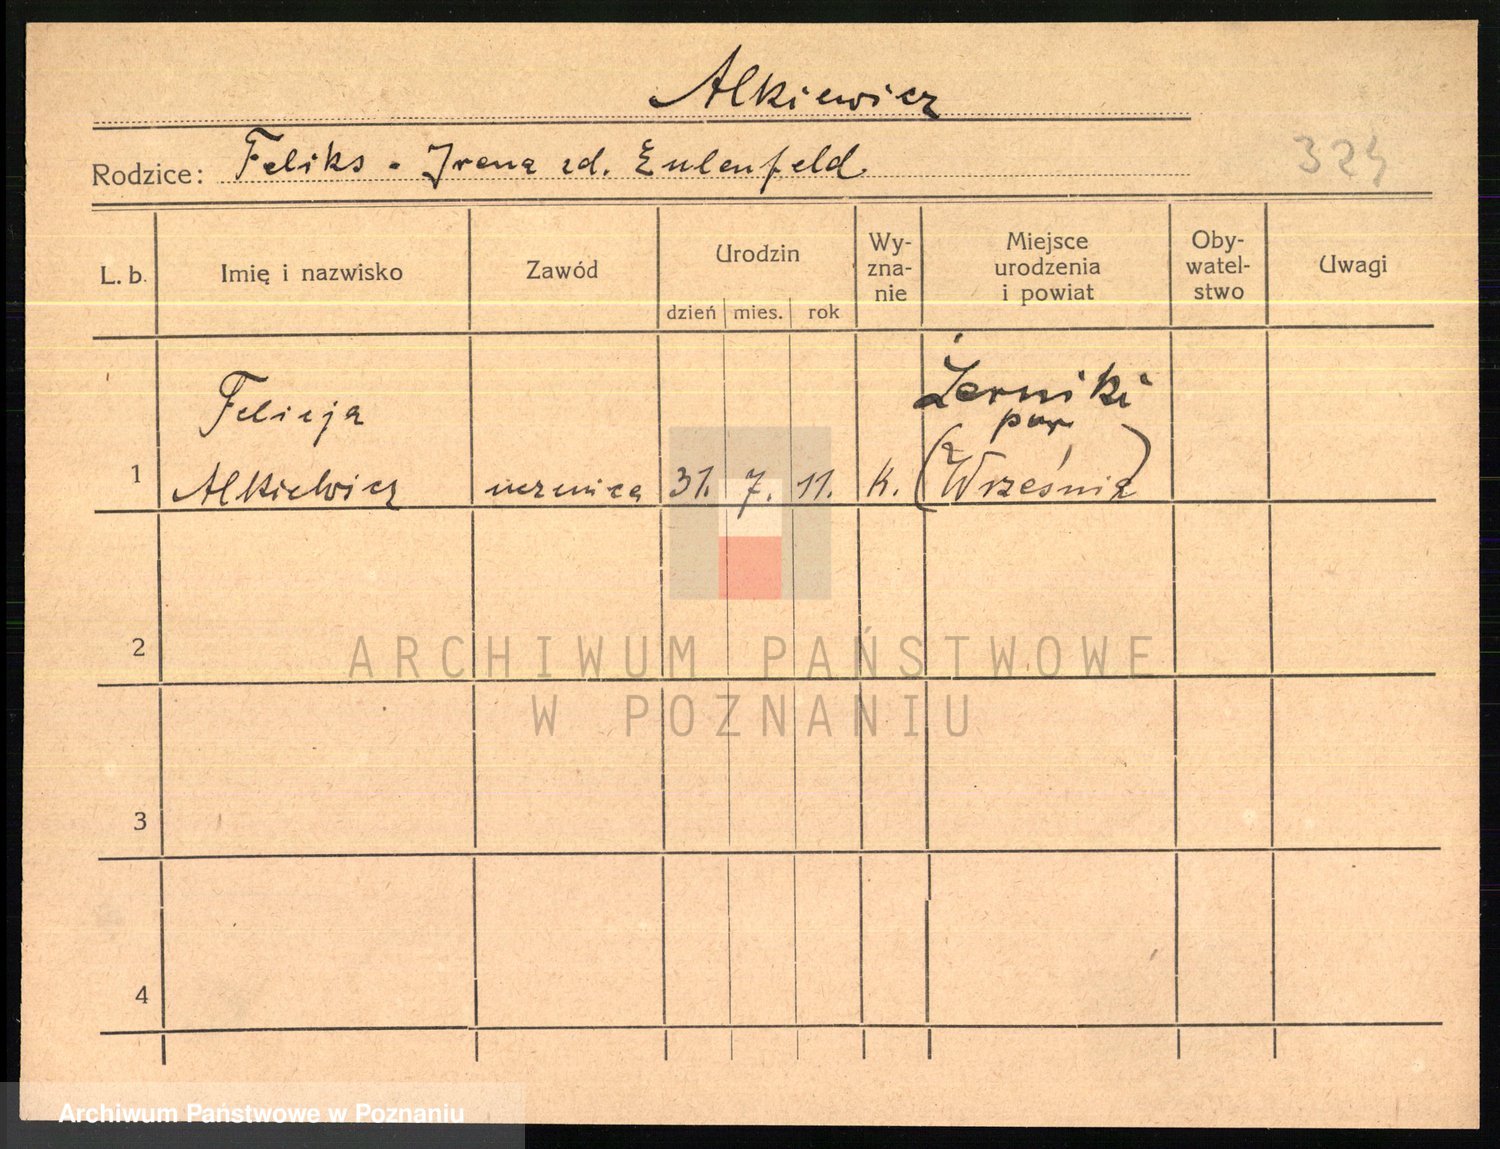 Alkiewicz
Rodzice: Feliks - Irena zd. Eulenfeld
324
L. b.
Imię i nazwisko
Zawód
Urodzin
dzień mies. rok
Wy-
zna-
nie
Miejsce
urodzenia
i powiat
Oby-
watel-
stwo
Uwagi
1
Felicja
Alkiewicz
uczenica
31. 7. 11.
k.
Żerniki
pow
(Września)
2
3
4
ARCHIWUM PAŃSTWOWE
W POZNANIU
Archiwum Państwowe w Poznaniu